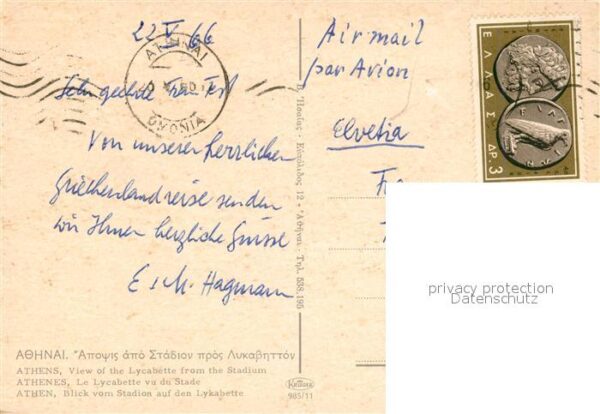 22 V 66
ΑΘΗΝΑΙ
ΟΜΟΝΙΑ
Sehr geehrte Frau
Von unserer herrlichen
Griechenlandreise senden
wir Ihnen herzliche Grüsse
E & M. Hagmann
Air mail
par Avion
Elvetia
Fr
ΕΛΛΑΣ ΔΡ. 3
12 • Ἀθῆναι - Τηλ. 538.195
ΑΘΗΝΑΙ. Ἄποψις ἀπό Στάδιον πρός Λυκαβηττόν
ATHENS, View of the Lycabette from the Stadium
ATHENES, Le Lycabette vu du Stade
ATHEN, Blick vom Stadion auf den Lykabette
985/11
privacy protection
Datenschutz